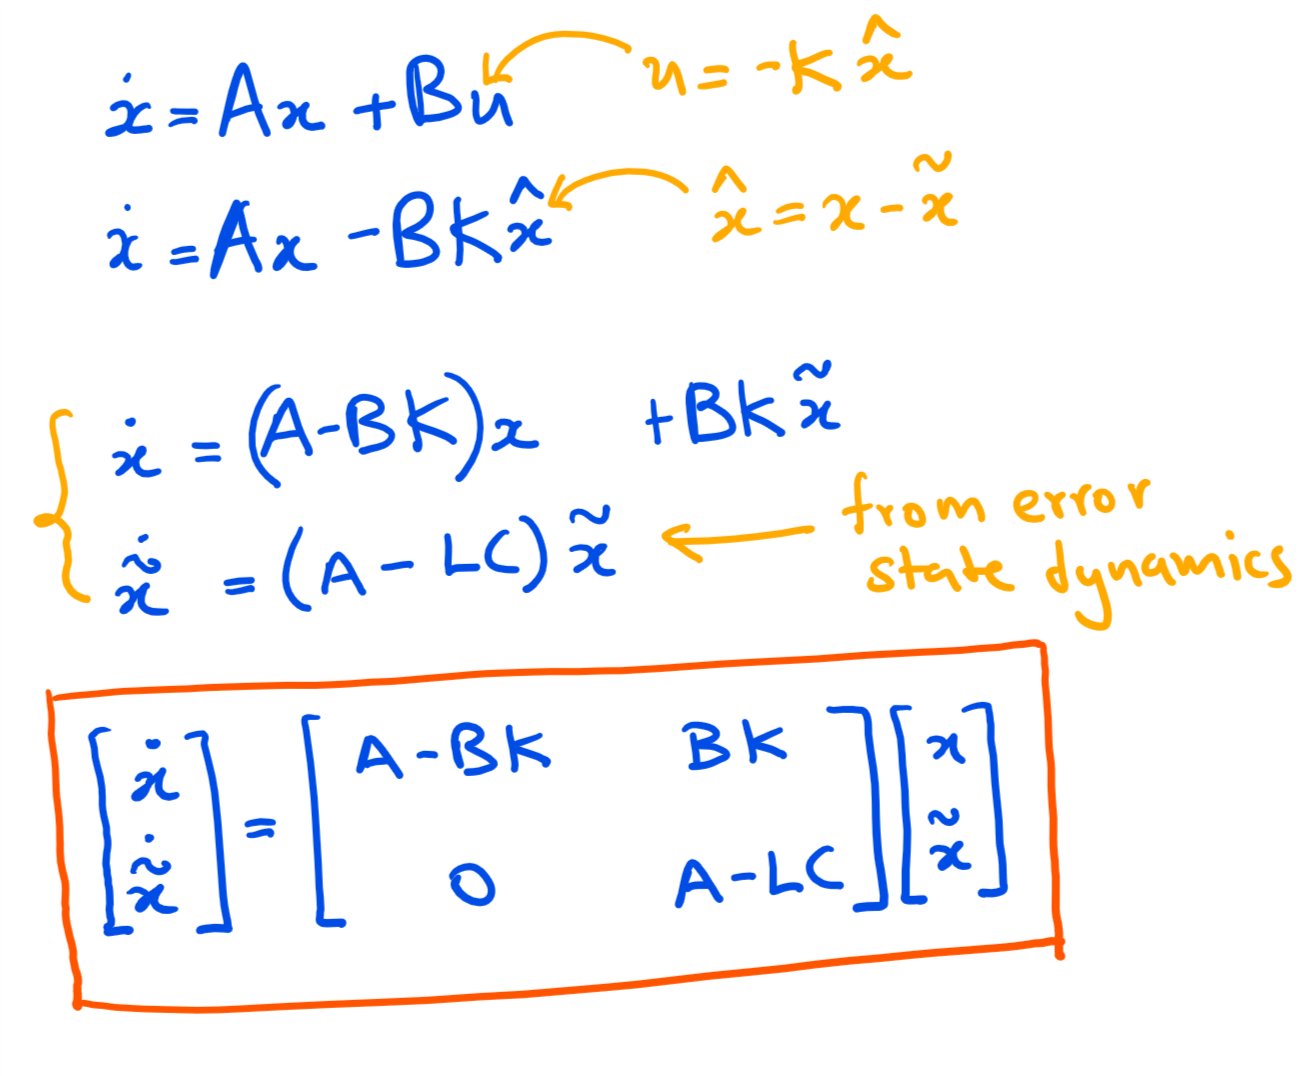 ẋ = Ax + Bu u = -K x̂
ẋ = Ax - BK x̂ x̂ = x - x̃
ẋ = (A-BK)x +BK x̃
x̃̇ = (A - LC) x̃ from error
state dynamics
[ẋ x̃̇] = [A-BK BK 0 A-LC] [x x̃]